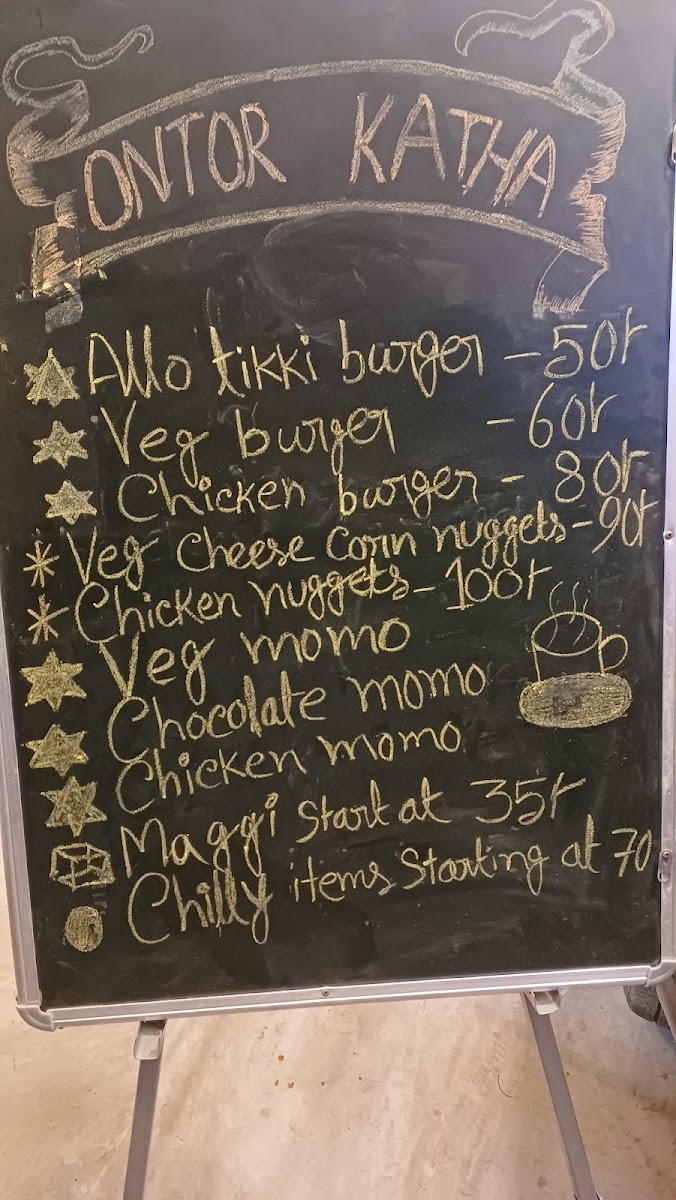 ONTOR KATHA
Allo tikki burger - 50r
Veg burger - 60r
Chicken burger - 80r
Veg Cheese Corn nuggets - 90r
Chicken nuggets - 100r
Veg momo
Chocolate momo
Chicken momo
Maggi Start at 35r
Chilly items Starting at 70